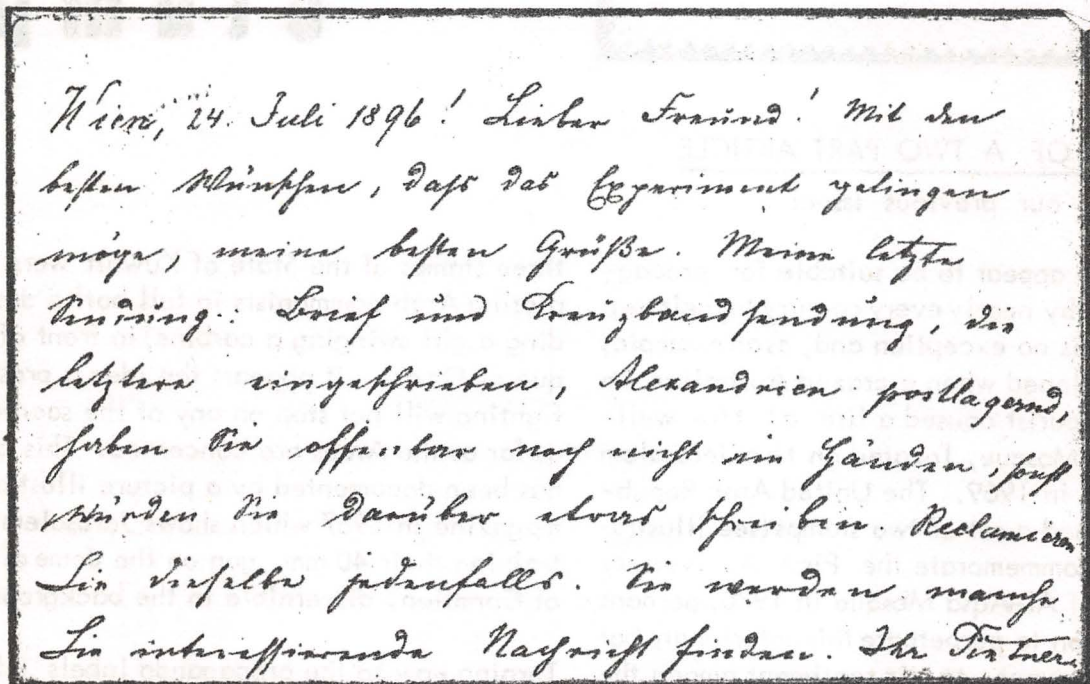 Wien, 24. Juli 1896! Lieber Freund! Mit den
besten Wünschen, daß das Experiment gelingen
möge, meine besten Grüße. Meine letzte
Sendung: Brief und Kreuzbandsendung, die
letztere eingeschrieben, Alexandrien postlagernd,
haben Sie offenbar noch nicht in Händen, sonst
würden Sie darüber etwas schreiben. Reclamieren
Sie dieselbe jedenfalls. Sie werden manche
Sie interessierende Nachricht finden. Ihr